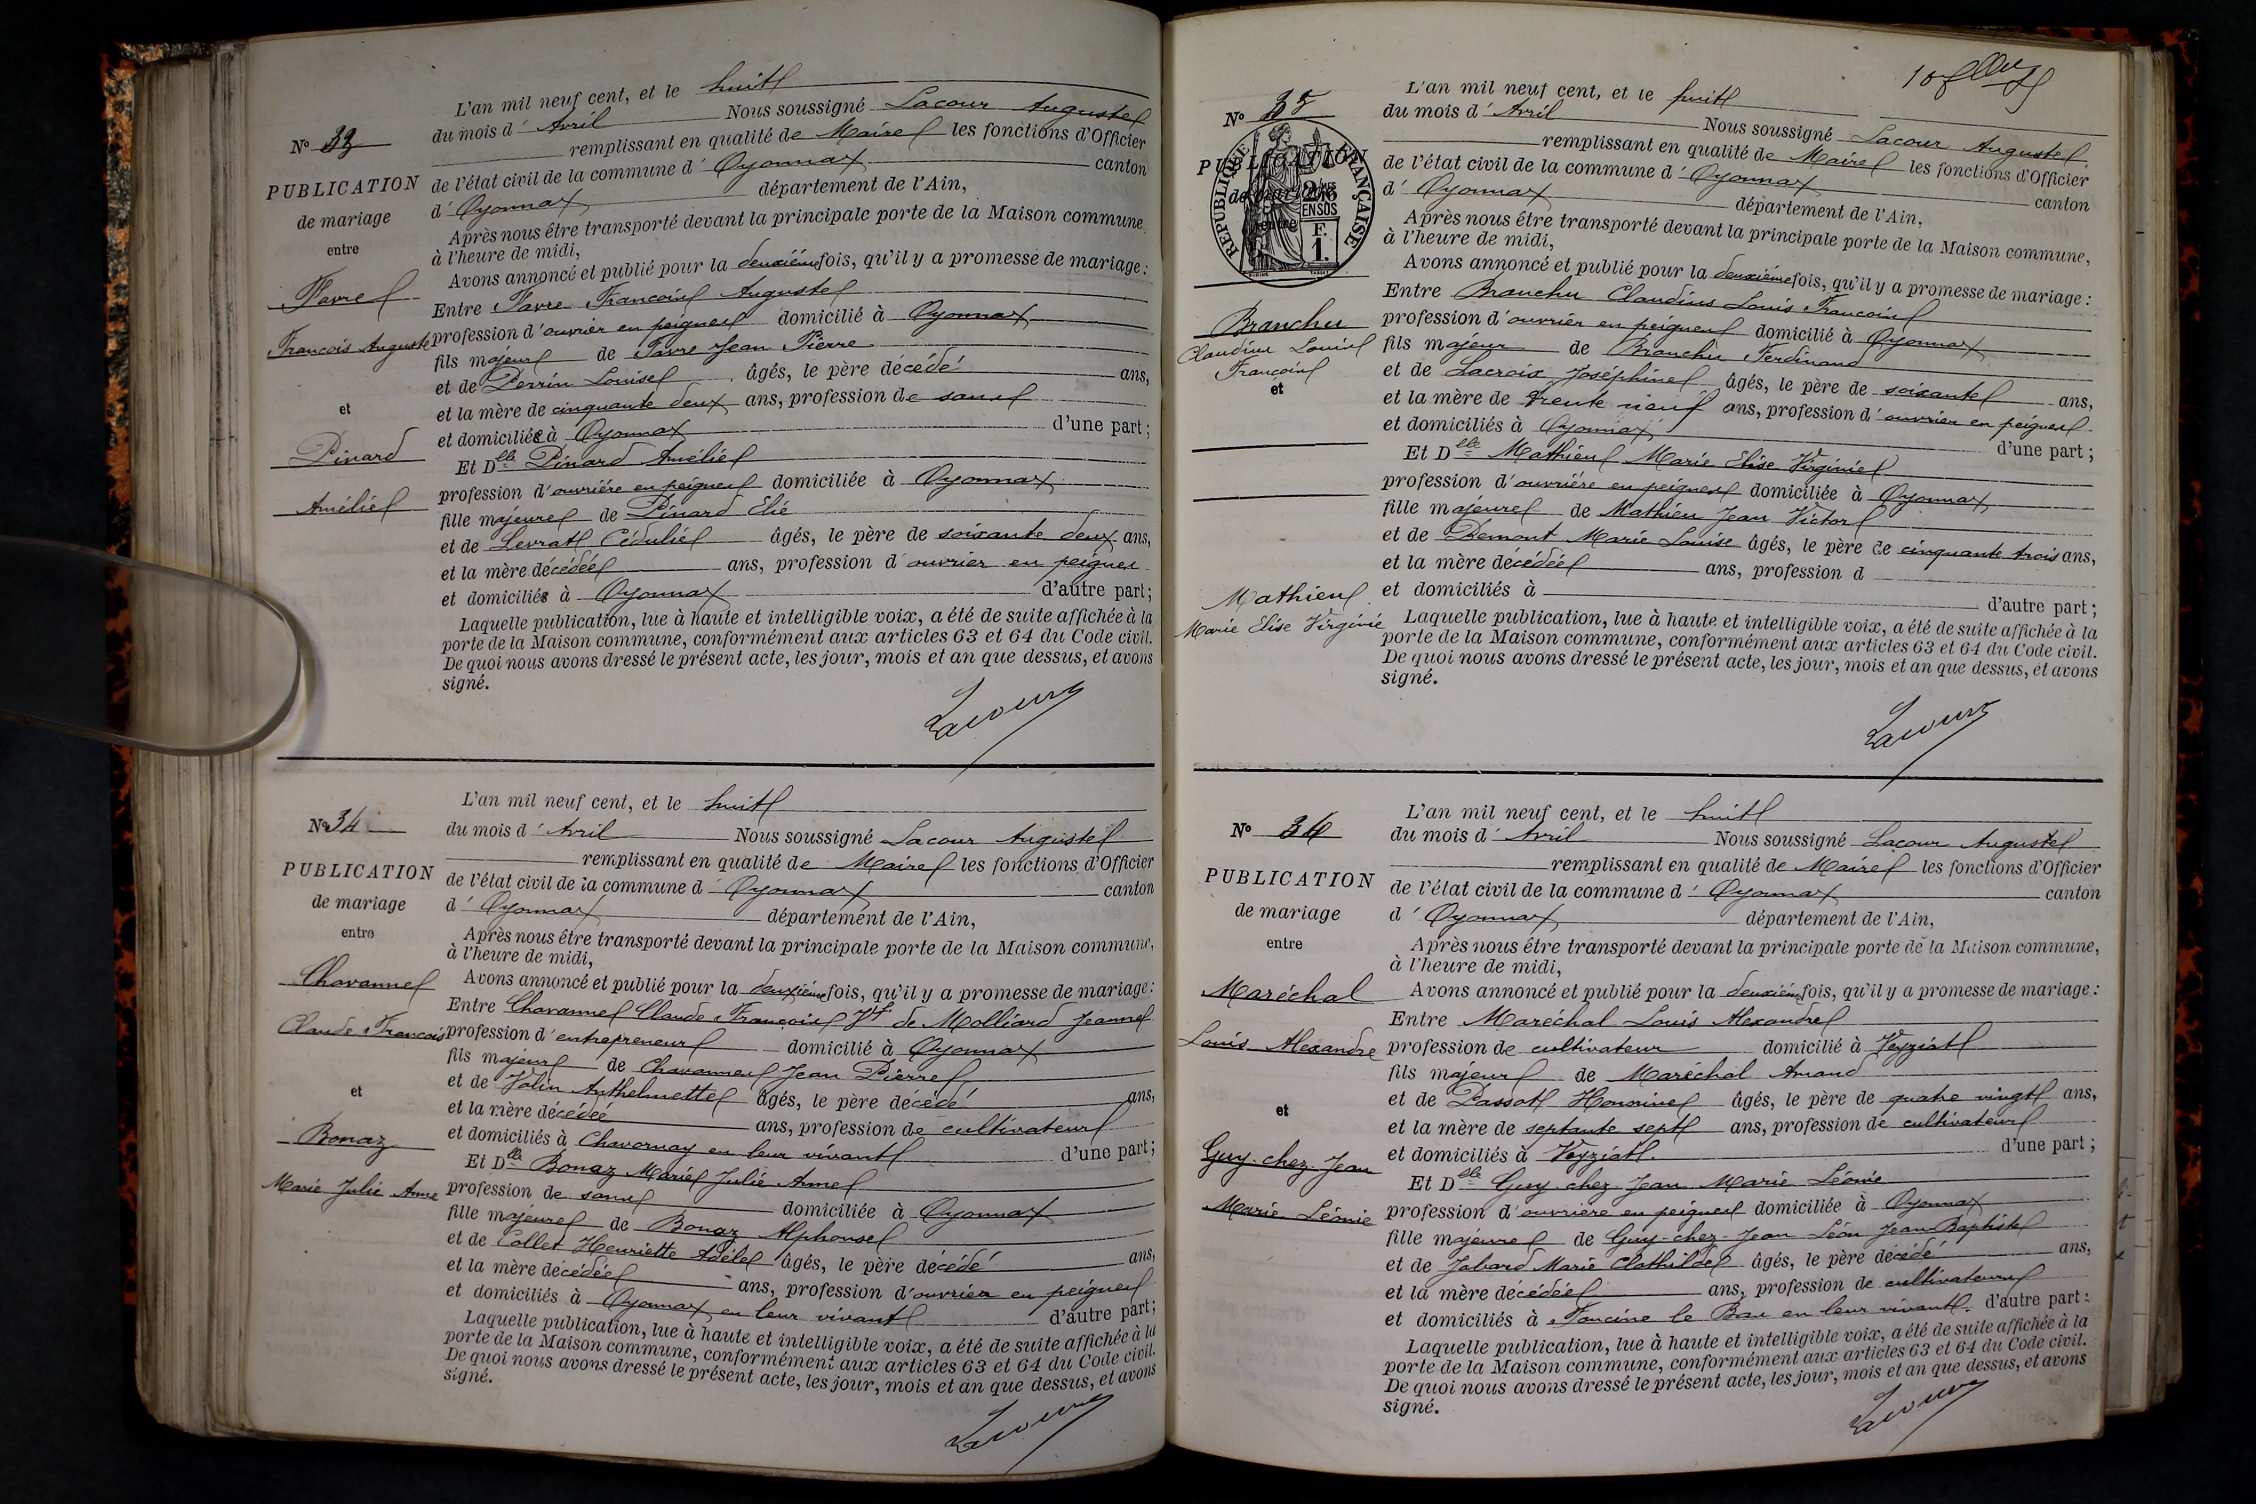 L'an mil neuf cent, et le huit
du mois d'Avril Nous soussigné Lacour Auguste
remplissant en qualité de Maire les fonctions d'Officier
de l'état civil de la commune d'Oyonnax canton
d'Oyonnax département de l'Ain,
Après nous être transporté devant la principale porte de la Maison commune,
à l'heure de midi,
Avons annoncé et publié pour la deuxième fois, qu'il y a promesse de mariage:
Entre Favre François Auguste
profession d'ouvrier en peignes domicilié à Oyonnax
fils majeur de Favre Jean Pierre
et de Perrin Louise âgés, le père décédé ans,
et la mère de cinquante deux ans, profession de sans
et domiciliée à Oyonnax d'une part;
Et Dlle Pinard Amélie
profession d'ouvrière en peignes domiciliée à Oyonnax
fille majeure de Pinard Elie
et de Levrat Cédulie âgés, le père de soixante deux ans,
et la mère décédée ans, profession d'ouvrier en peignes
et domiciliés à Oyonnax d'autre part;
Laquelle publication, lue à haute et intelligible voix, a été de suite affichée à la
porte de la Maison commune, conformément aux articles 63 et 64 du Code civil.
De quoi nous avons dressé le présent acte, les jour, mois et an que dessus, et avons
signé.
Lacour
No 33
PUBLICATION
de mariage
entre
Favre
François Auguste
et
Pinard
Amélie
L'an mil neuf cent, et le huit
du mois d'Avril Nous soussigné Lacour Auguste
remplissant en qualité de Maire les fonctions d'Officier
de l'état civil de la commune d'Oyonnax canton
d'Oyonnax département de l'Ain,
Après nous être transporté devant la principale porte de la Maison commune,
à l'heure de midi,
Avons annoncé et publié pour la deuxième fois, qu'il y a promesse de mariage:
Entre Chavannes Claude François Vf de Molliard Jeanne
profession d'entrepreneur domicilié à Oyonnax
fils majeur de Chavannes Jean Pierre
et de Jolin Anthelmette âgés, le père décédé ans,
et la mère décédée ans, profession de cultivateurs
et domiciliés à Chavornay en leur vivant d'une part;
Et Dlle Bonaz Marie Julie Anne
profession de sans domiciliée à Oyonnax
fille majeure de Bonaz Alphonse
et de Collet Henriette Adèle âgés, le père décédé ans,
et la mère décédée ans, profession d'ouvrier en peignes
et domiciliés à Oyonnax en leur vivant d'autre part;
Laquelle publication, lue à haute et intelligible voix, a été de suite affichée à la
porte de la Maison commune, conformément aux articles 63 et 64 du Code civil.
De quoi nous avons dressé le présent acte, les jour, mois et an que dessus, et avons
signé.
Lacour
No 34
PUBLICATION
de mariage
entre
Chavannes
Claude François
et
Bonaz
Marie Julie Anne
L'an mil neuf cent, et le huit
du mois d'Avril Nous soussigné Lacour Auguste
remplissant en qualité de Maire les fonctions d'Officier
de l'état civil de la commune d'Oyonnax
d'Oyonnax département de l'Ain, canton
Après nous être transporté devant la principale porte de la Maison commune,
à l'heure de midi,
Avons annoncé et publié pour la deuxième fois, qu'il y a promesse de mariage:
Entre Branchu Claudius Louis François
profession d'ouvrier en peignes domicilié à Oyonnax
fils majeur de Branchu Ferdinand
et de Lacroix Joséphine âgés, le père de soixante ans,
et la mère de trente neuf ans, profession d'ouvrier en peignes
et domiciliés à Oyonnax d'une part;
Et Dlle Mathieu Marie Elise Virginie
profession d'ouvrière en peignes domiciliée à Oyonnax
fille majeure de Mathieu Jean Victor
et de Demont Marie Louise âgés, le père de cinquante trois ans,
et la mère décédée ans, profession d
et domiciliés à d'autre part;
Laquelle publication, lue à haute et intelligible voix, a été de suite affichée à la
porte de la Maison commune, conformément aux articles 63 et 64 du Code civil.
De quoi nous avons dressé le présent acte, les jour, mois et an que dessus, et avons
signé.
Lacour
No 35
PUBLICATION
de mariage
entre
RÉPUBLIQUE FRANÇAISE
2/10
EN SUS
F.
1.
Branchu
Claudius Louis
François
et
Mathieu
Marie Elise Virginie
L'an mil neuf cent, et le huit
du mois d'Avril Nous soussigné Lacour Auguste
remplissant en qualité de Maire les fonctions d'Officier
de l'état civil de la commune d'Oyonnax canton
d'Oyonnax département de l'Ain,
Après nous être transporté devant la principale porte de la Maison commune,
à l'heure de midi,
Avons annoncé et publié pour la deuxième fois, qu'il y a promesse de mariage:
Entre Maréchal Louis Alexandre
profession de cultivateur domicilié à Veyziat
fils majeur de Maréchal Amand
et de Passot Honorine âgés, le père de quatre vingt ans,
et la mère de septante sept ans, profession de cultivateurs
et domiciliés à Veyziat d'une part;
Et Dlle Guy-chez-Jean Marie Léonie
profession d'ouvrière en peignes domiciliée à Oyonnax
fille majeure de Guy-chez-Jean Léon Jean Baptiste
et de Jobard Marie Clothilde âgés, le père décédé ans,
et la mère décédée ans, profession de cultivateurs
et domiciliés à Foncine le Bas en leur vivant. d'autre part:
Laquelle publication, lue à haute et intelligible voix, a été de suite affichée à la
porte de la Maison commune, conformément aux articles 63 et 64 du Code civil.
De quoi nous avons dressé le présent acte, les jour, mois et an que dessus, et avons
signé.
Lacour
No 36
PUBLICATION
de mariage
entre
Maréchal
Louis Alexandre
et
Guy-chez-Jean
Marie Léonie